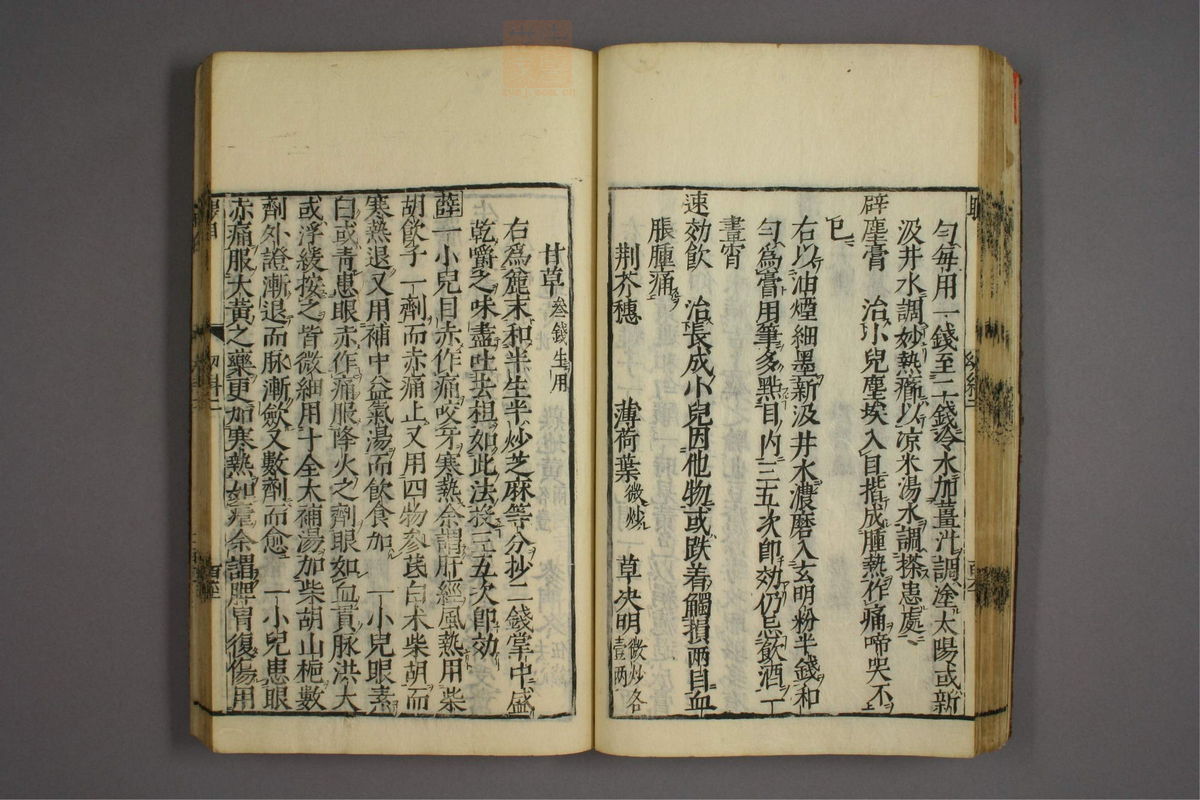 勻每用一錢至二錢冷水加薑汁調塗太陽或新
汲井水調妙熱癤以凉米湯水調搽患處
辟塵膏　治小兒塵埃入目揩成腫熱作痛啼哭不
已
右以油煙細墨新汲井水濃磨入玄明粉半錢和
勻爲膏用筆多點目內三五次卽効仍忌飲酒一
晝宵
速効飲　治長成小兒因他物或跌着觸損兩目血
脹腫痛
荆芥穗　薄荷葉微炒　草决明微炒各壹兩
甘草叁錢生用
右爲麄末和半生半炒芝麻等分抄二錢掌中盛
乾嚼之味盡吐去粗如此法投三五次卽効
薛一小兒目赤作痛咬牙寒熱余謂肝經風熱用柴
胡飲子一劑而赤痛止又用四物參芪白术柴胡而
寒熱退又用補中益氣湯而飲食加　一小兒眼素
白或青患眼赤作痛服降火之劑眼如血貫脉洪大
或浮緩按之皆微細用十全大補湯加柴胡山梔數
劑外證漸退而脉漸斂又數劑而愈　一小兒患眼
赤痛服大黃之藥更加寒熱如瘧余謂脾胃復傷用